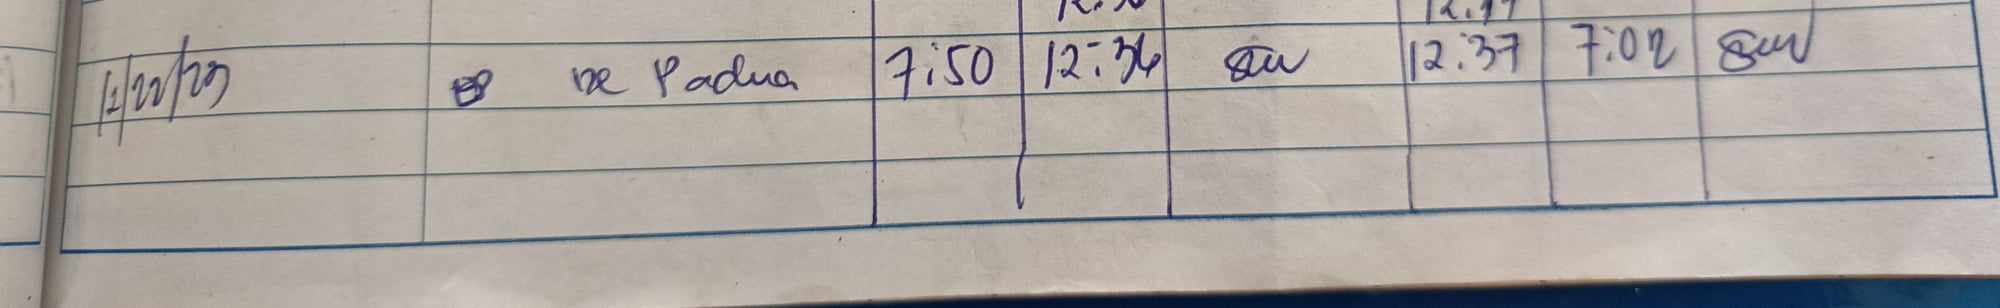 12/22/23 De Padua 7:50 12:36 12:37 7:02